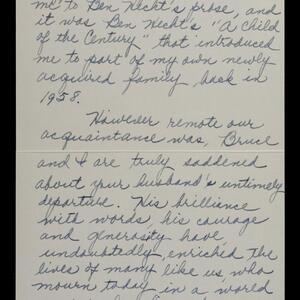 me to Ben Hecht's prose, and
it was Ben Hecht's "A Child
of the Century" that introduced
me to part of my own newly
acquired family, back in
1958.
However remote our
acquaintance was, Bruce
and I are truly saddened
about your husband's untimely
departure. His brilliance
with words, his courage
and generosity have
undoubtedly enriched the
lives of many like us, who
mourn today in a world